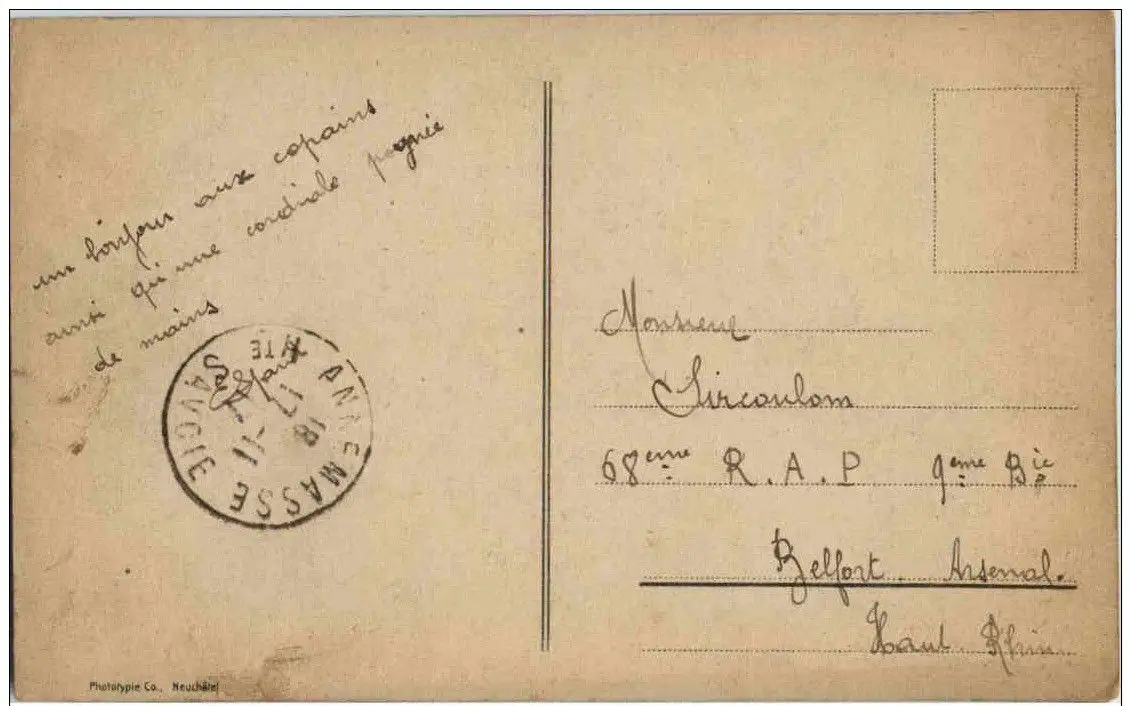 un bonjour aux copains
ainsi qu'une cordiale pognée
de mains
ANNEMASSE
HTE SAVOIE
18
17
11
Monsieur
Sircoulom
68eme R.A.P 9eme Bie
Belfort. Arsenal.
Haut Rhin
Phototypie Co., Neuchâtel